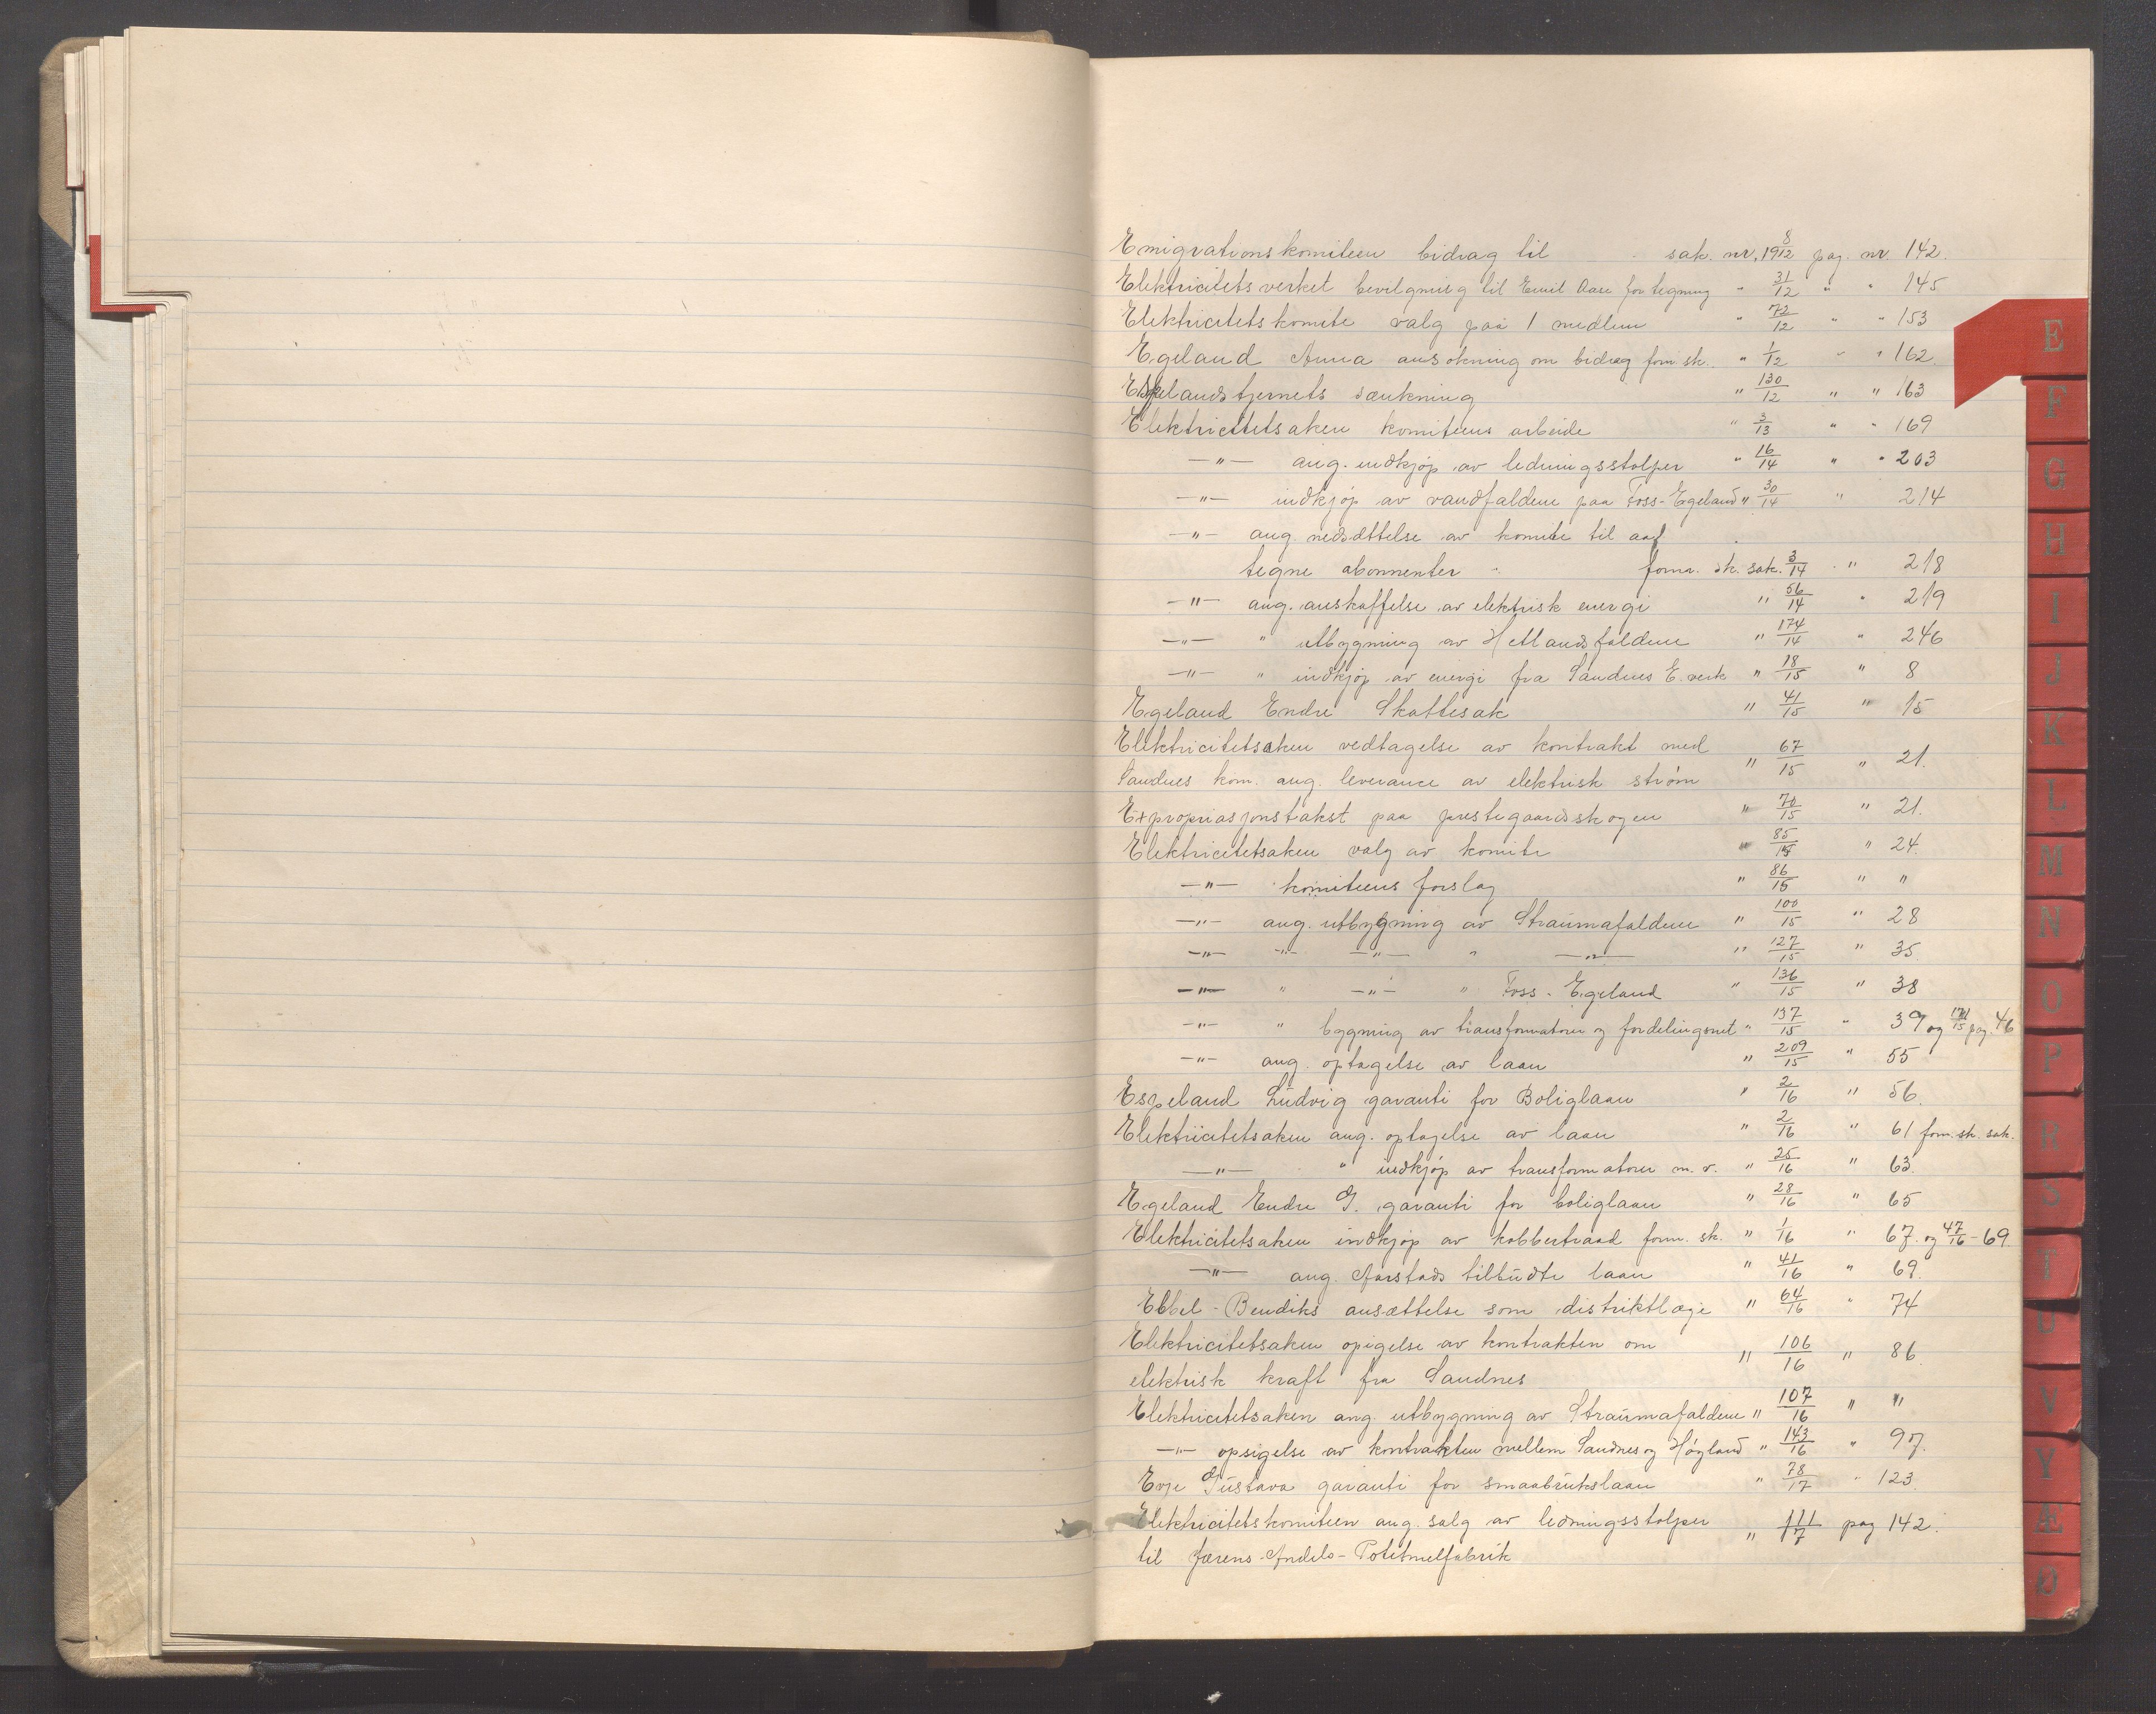 Emigrationskomiteen bidrag til sak. nr. 8/1912 pag. nr. 142.
Elektricitetsverket bevilgning til Emil Aase for tegning " 31/12 " " 145
Elektricitetskomite valg paa 1 medlem " 72/12 " " 153
Egeland Anna ansøkning om bidrag form sk. " 1/12 " " 162
Espelandstjernets sænkning " 130/12 " " 163
Elektricitetsaken komiteens arbeide " 3/13 " " 169
—"— ang. indkjøp av ledningsstolper " 16/14 " " 203
—"— indkjøp av vandfaldene paa Foss-Egeland " 30/14 " 214
—"— ang. nedsættelse av komite til aa
tegne abonnenter form. sk. sak. 3/14 " 218
—"— ang. anskaffelse av elektrisk energi " 56/14 " 219
—"— " utbygning av Hetlandsfaldene " 174/14 " 246
—"— " indkjøp av energi fra Sandnes E. verk " 18/15 " 8
Egeland Endre Skattesak " 41/15 " 15
Elektricitetsaken vedtagelse av kontrakt med
Sandnes kom. ang. leverance av elektrisk strøm " 67/15 " 21.
Expropriasjonstakst paa prestegaardsskogen " 70/15 " 21.
Elektricitetsaken valg av komite " 85/15 " 24.
—"— komiteens forslag " 86/15 " "
—"— ang. utbygning av Straumafaldene " 100/15 " 28
—"— —"— —"— " —"— " 127/15 " 35.
—"— " —"— " Foss-Egeland " 136/15 " 38
—"— " bygning av transformatorer og fordelingsnet " 137/15 " 39 og 171/15 pag. 46
—"— ang. optagelse av laan " 209/15 " 55
Espeland Ludvig garanti for Boliglaan " 2/16 " 56.
Elektricitetsaken ang. optagelse av laan " 2/16 " 61 form. sk. sak.
—"— " indkjøp av transformatorer m. v. " 25/16 " 63.
Egeland Endre G. garanti for boliglaan " 28/16 " 65
Elektricitetsaken indkjøp av kobbertraad form. sk. " 1/16 " 67. og 47/16 - 69
—"— ang. Aarstads tilbudte laan " 41/16 " 69.
Ebbel-Bendiks ansættelse som distriktlæge " 64/16 " 74
Elektricitetsaken opigelse av kontrakten om
elektrisk kraft fra Sandnes " 106/16 " 86
Elektricitetsaken ang. utbygning av Straumafaldene " 107/16 " "
—"— opsigelse av kontrakten mellem Sandnes og Høyland " 143/16 " 97.
Evje Gustava garanti for smaabrukslaan " 78/17 " 123.
Elektricitetskomiteen ang. salg av ledningsstolper
til Jærens Andels-Potetmelfabrik " 111/7 pag 142.
E
F
G
H
I
J
K
L
M
N
O
P
R
S
T
U
V
Y
Æ
Ø